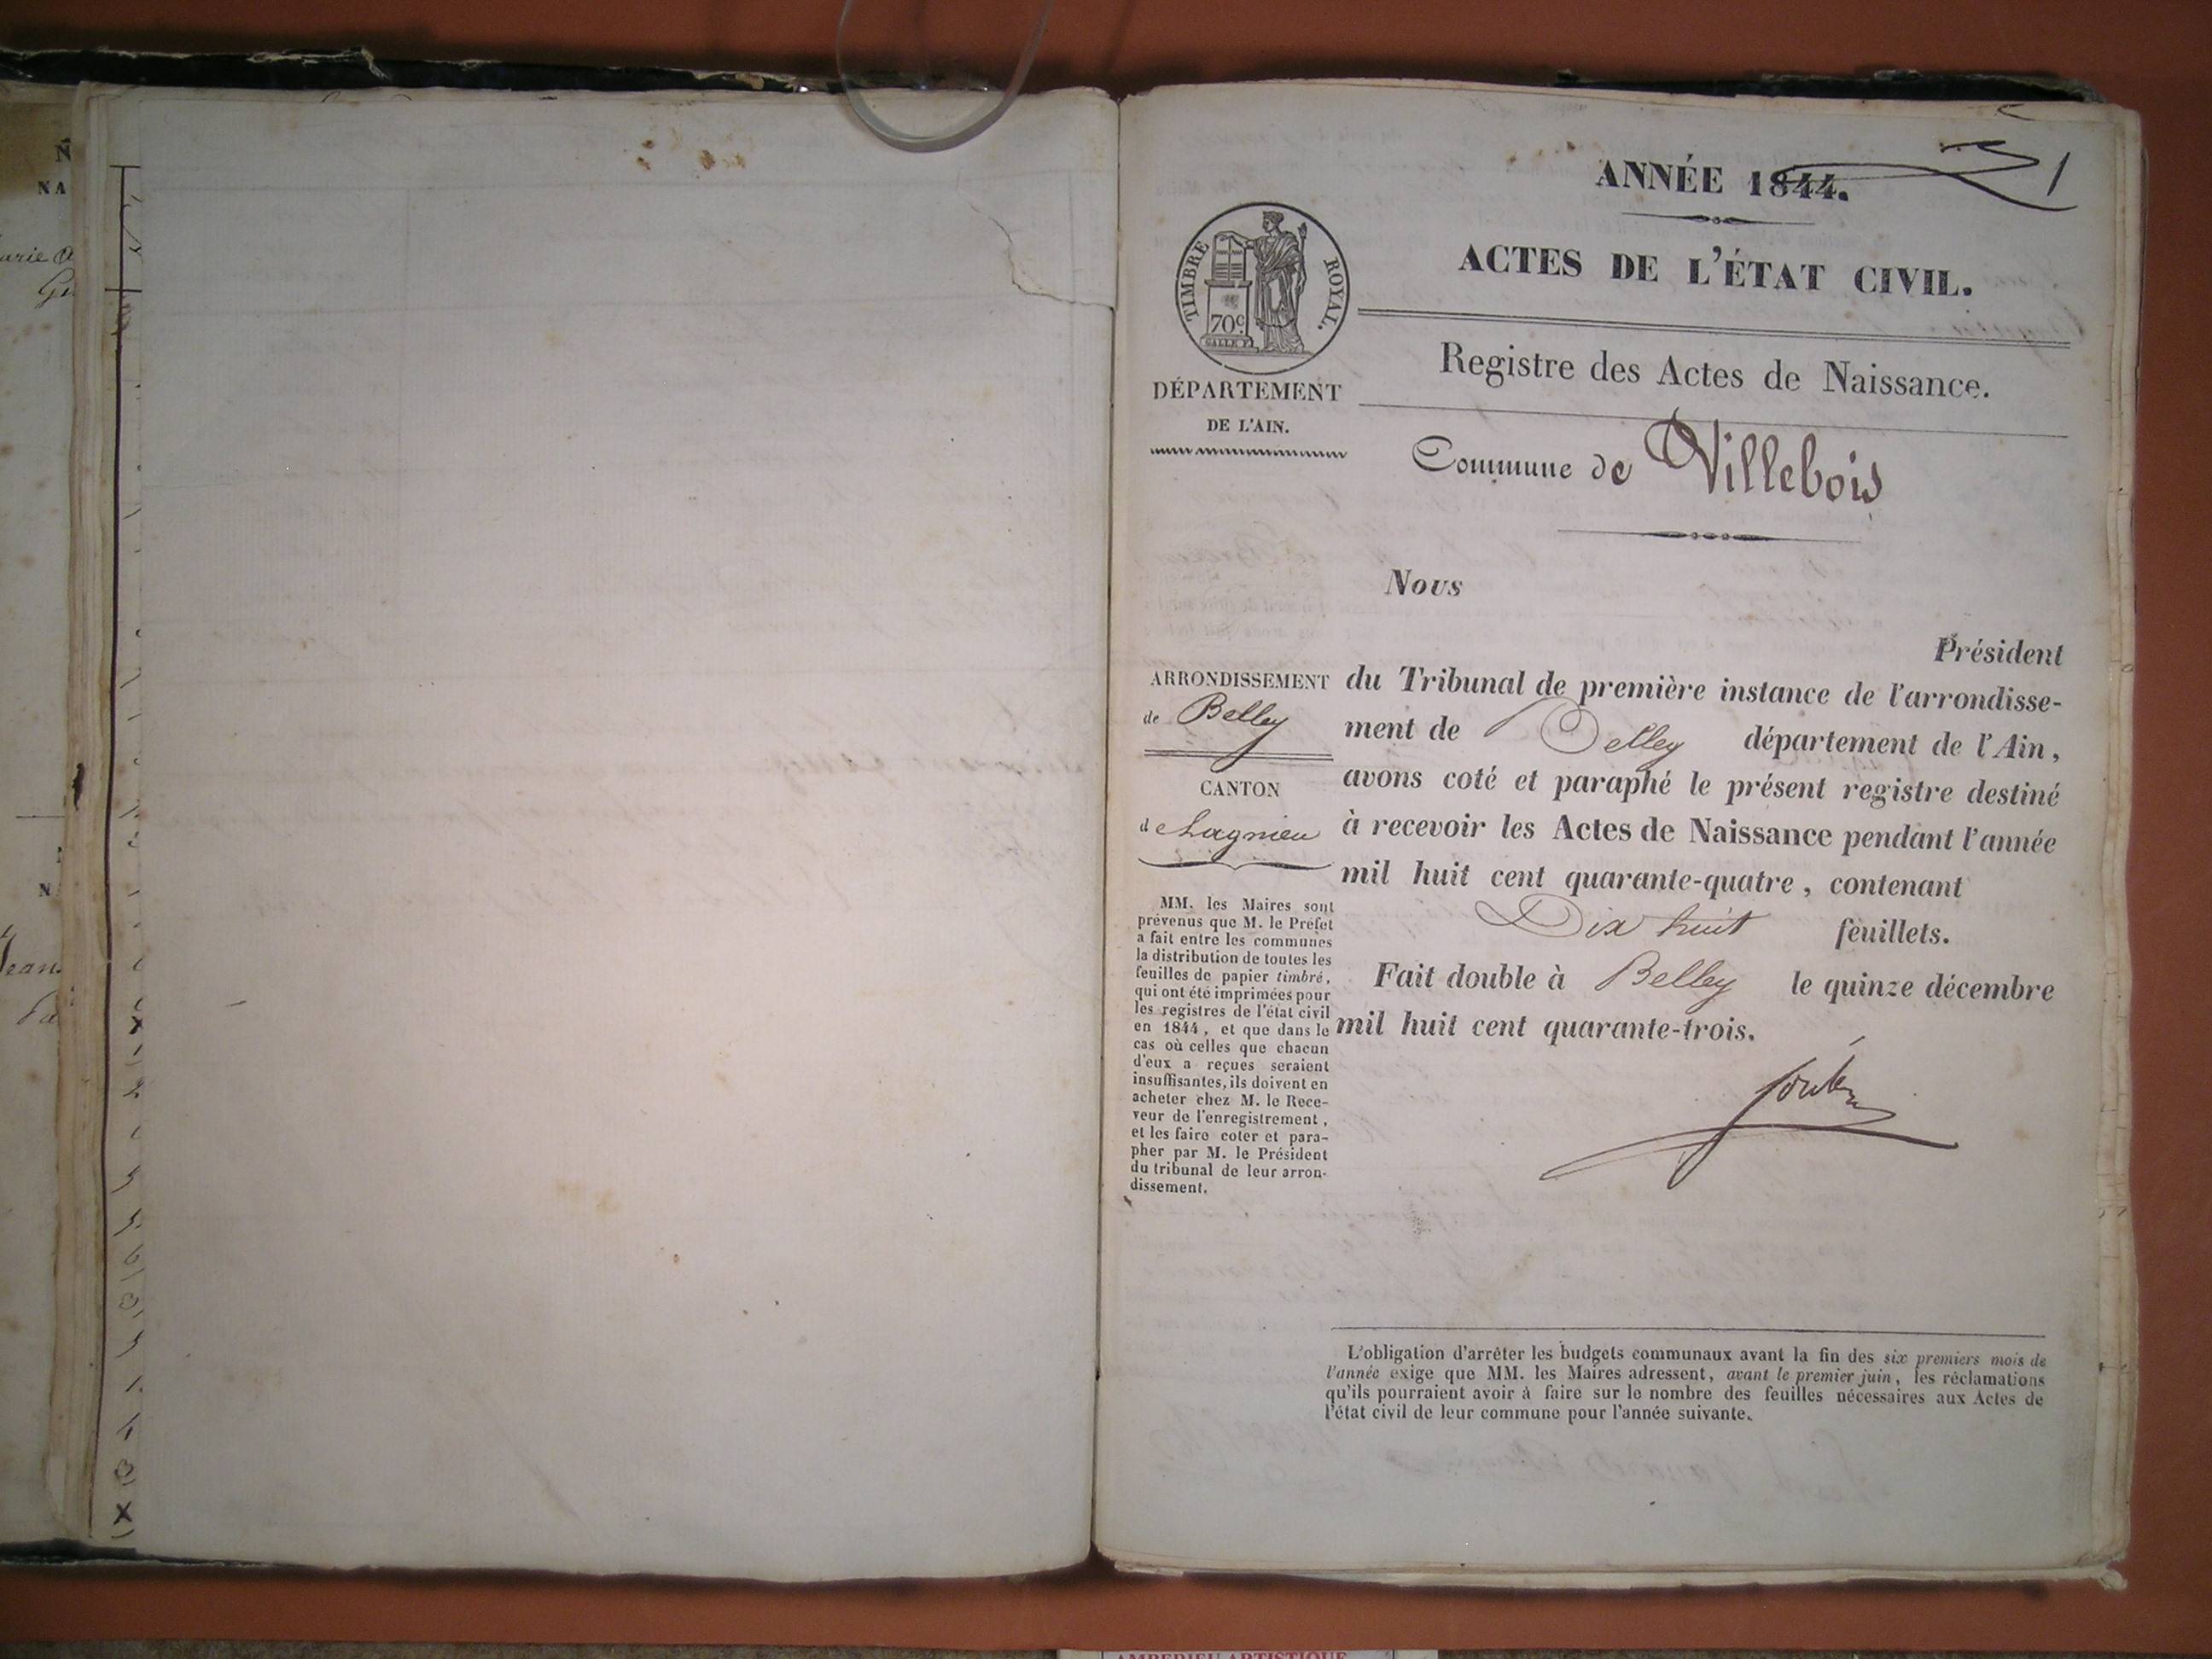 N
NA
arie
ANNÉE 1844.
1
TIMBRE ROYAL.
70c
ACTES DE L'ÉTAT CIVIL.
Registre des Actes de Naissance.
DÉPARTEMENT
DE L'AIN.
Commune de Villebois
Nous
Président
ARRONDISSEMENT
de Belley
CANTON
de Lagnieu
du Tribunal de première instance de l'arrondisse-
ment de Belley département de l'Ain,
avons coté et paraphé le présent registre destiné
à recevoir les Actes de Naissance pendant l'année
mil huit cent quarante-quatre, contenant
Dix huit feuillets.
Fait double à Belley le quinze décembre
mil huit cent quarante-trois.
MM. les Maires sont
prévenus que M. le Préfet
a fait entre les communes
la distribution de toutes les
feuilles de papier timbré,
qui ont été imprimées pour
les registres de l'état civil
en 1844, et que dans le
cas où celles que chacun
d'eux a reçues seraient
insuffisantes, ils doivent en
acheter chez M. le Rece-
veur de l'enregistrement,
et les faire coter et para-
pher par M. le Président
du tribunal de leur arron-
dissement.
L'obligation d'arrêter les budgets communaux avant la fin des six premiers mois de
l'année exige que MM. les Maires adressent, avant le premier juin, les réclamations
qu'ils pourraient avoir à faire sur le nombre des feuilles nécessaires aux Actes de
l'état civil de leur commune pour l'année suivante.
AMBERIEU ARTISTIQUE